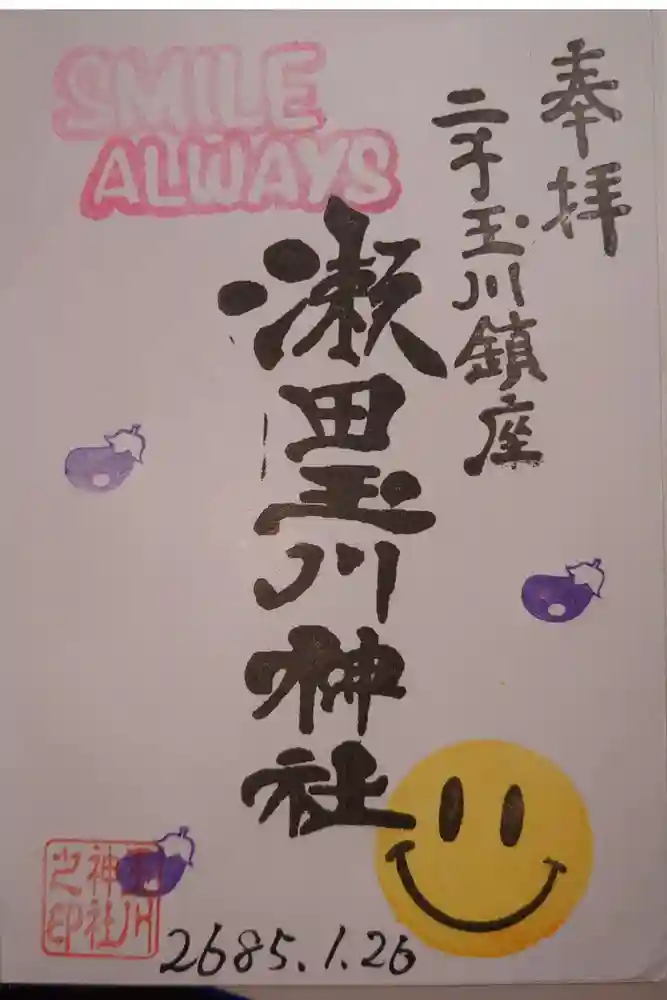 奉拝
二子玉川鎮座
SMILE
ALWAYS
瀬田玉川神社
神社
之印
2685.1.26